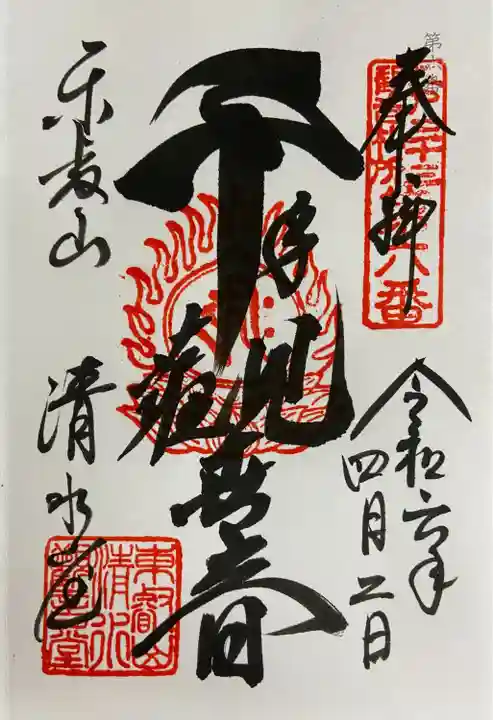 奉拝
令和六年
四月二日
千手
觀世音
東叡山
清水堂
第六番
東叡山
清水
觀音堂